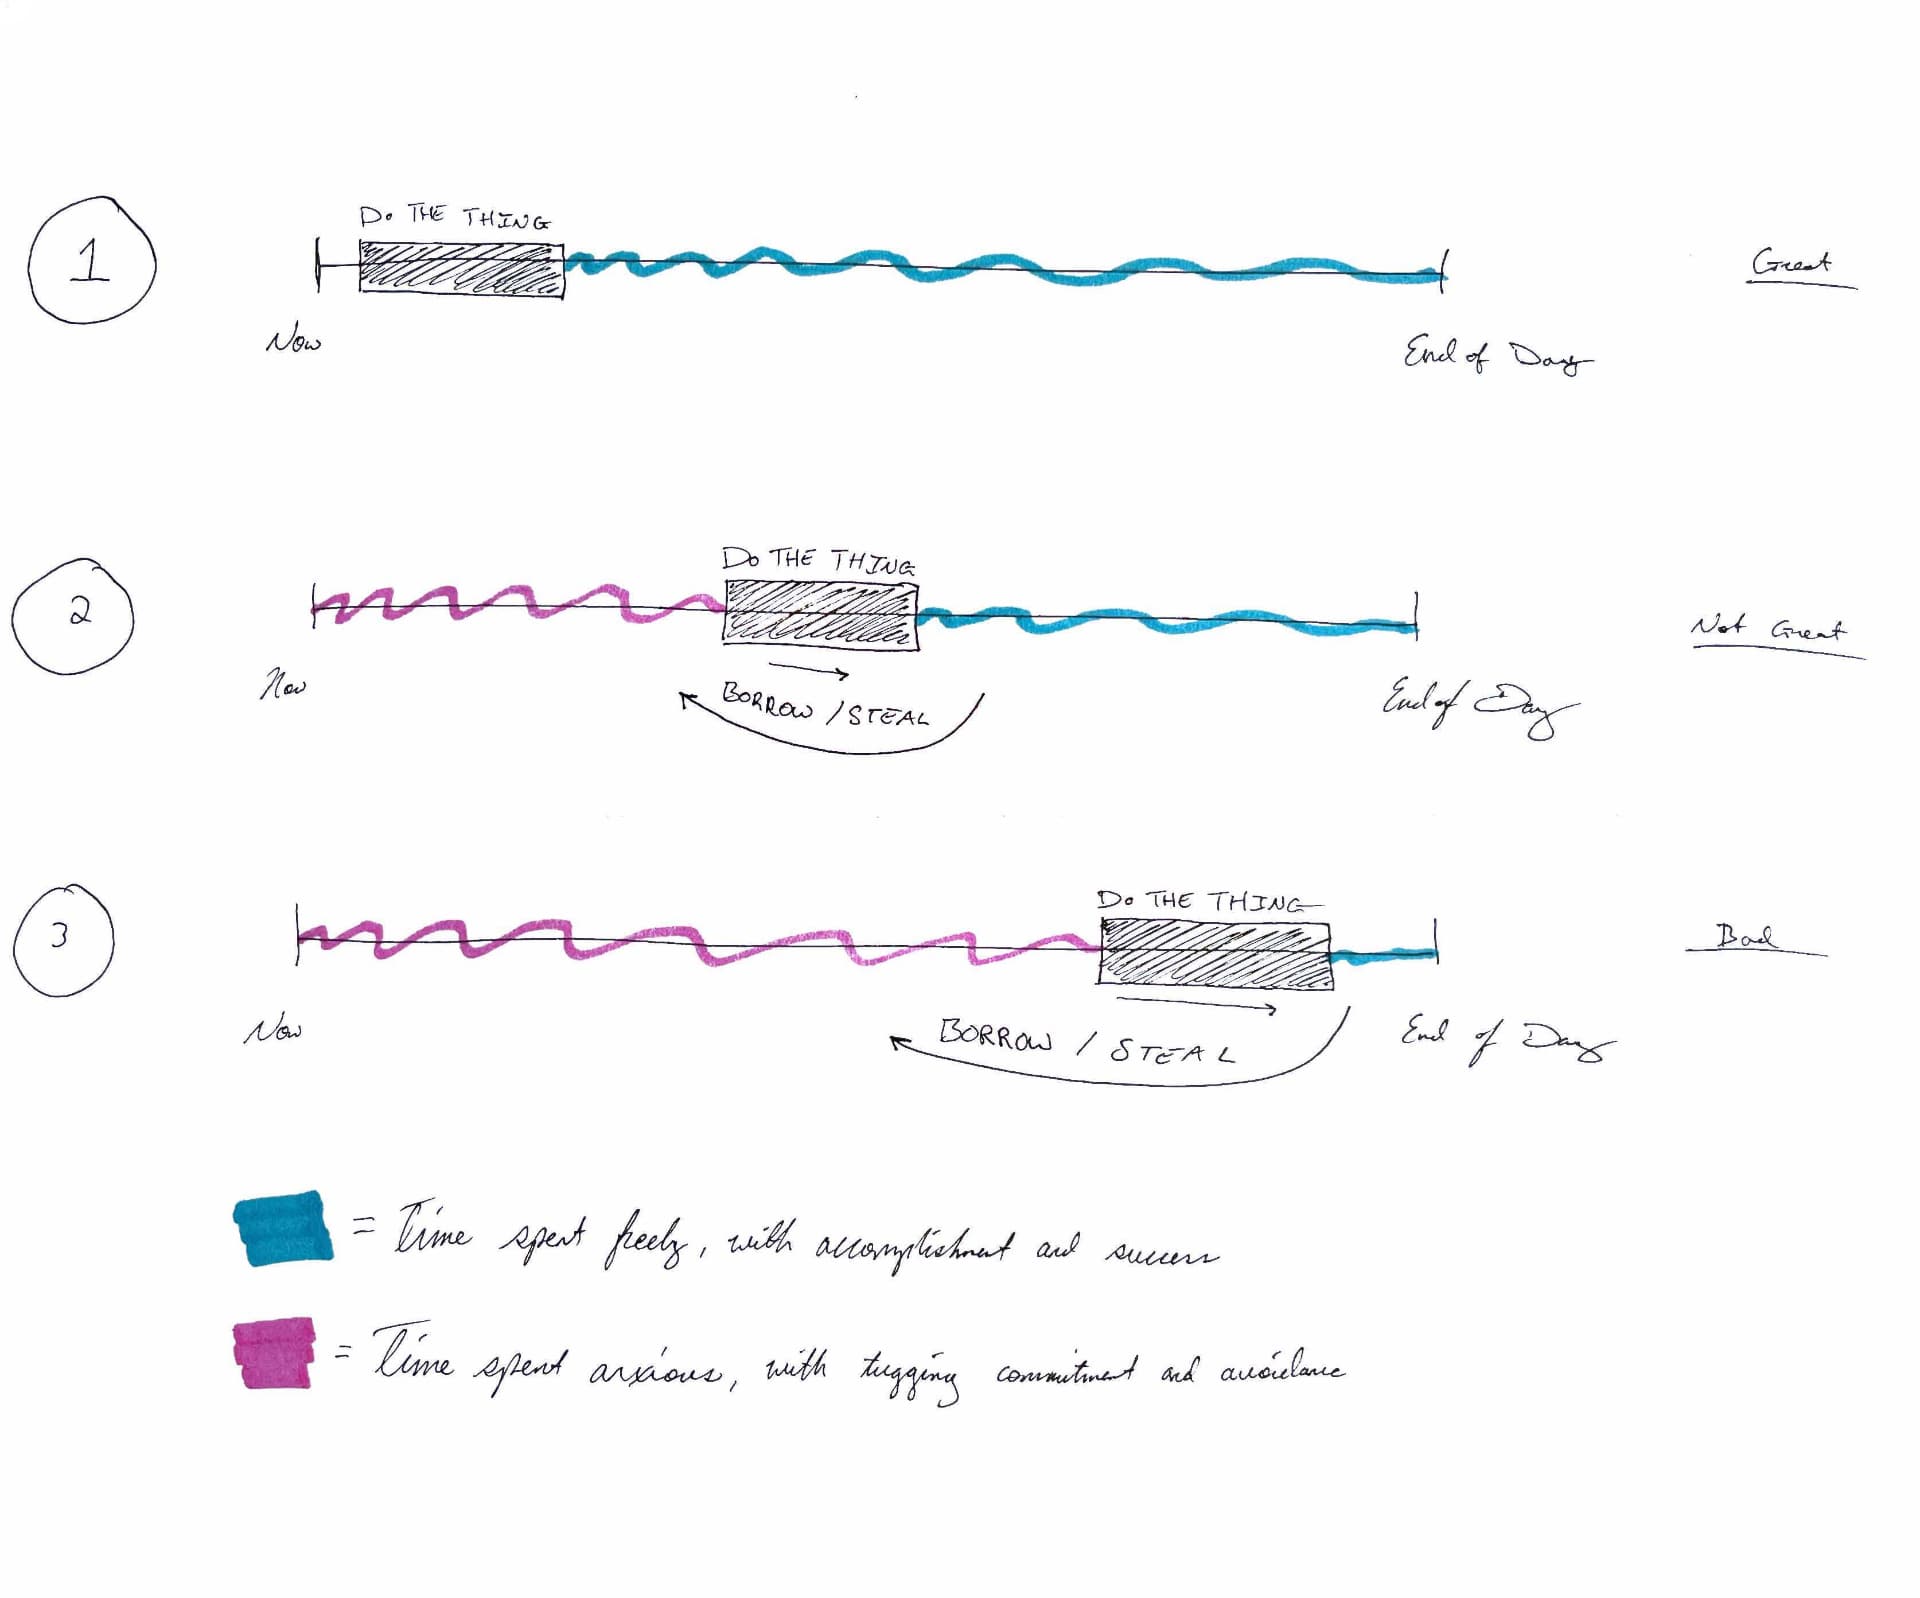 1
DO THE THING
Great
Now
End of Day
2
DO THE THING
Not Great
BORROW / STEAL
Now
End of Day
3
DO THE THING
Bad
BORROW / STEAL
Now
End of Day
= Time spent freely, with accomplishment and success
= Time spent anxious, with tugging commitment and avoidance